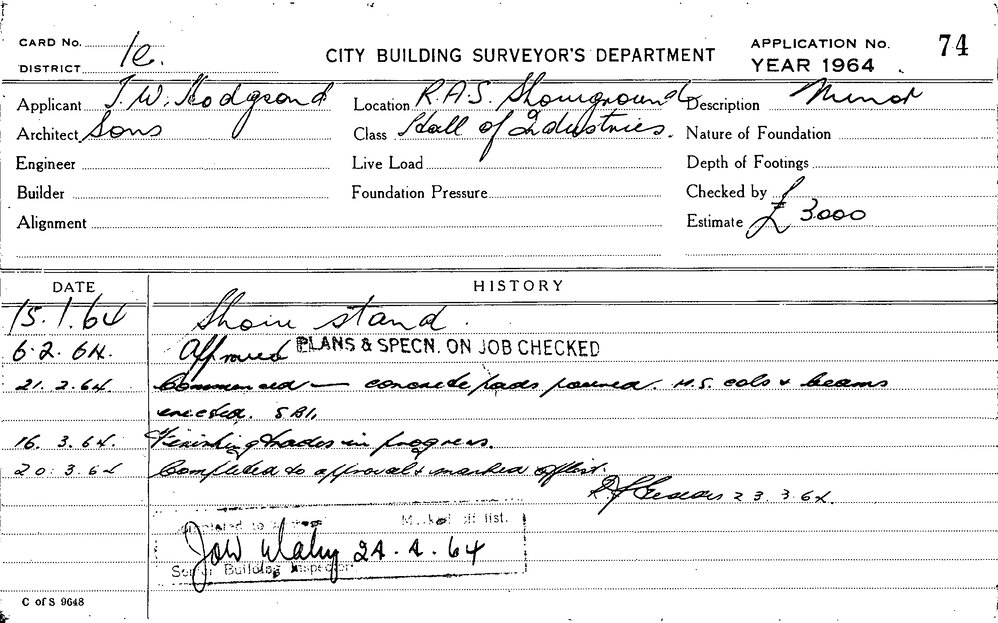 CARD No.
DISTRICT 1e.
CITY BUILDING SURVEYOR'S DEPARTMENT
APPLICATION No. 74
YEAR 1964
Applicant J. W. Hodgson & Location R.A.S. Showground Description Minor
Architect Sons Class Hall of Industries. Nature of Foundation
Engineer Live Load Depth of Footings
Builder Foundation Pressure Checked by
Alignment Estimate £ 3000
DATE HISTORY
15.1.64 Show stand.
6.2.64. Approved PLANS & SPECN. ON JOB CHECKED
21.2.64 Commenced — concrete pads poured. M.S. cols & beams
erected.
16.3.64. Finishing trades in progress.
20.3.64 Completed to approval & marked off list.
23.3.64.
Completed to Marked off list.
24.4.64
Senior Building Inspector
C of S 9648